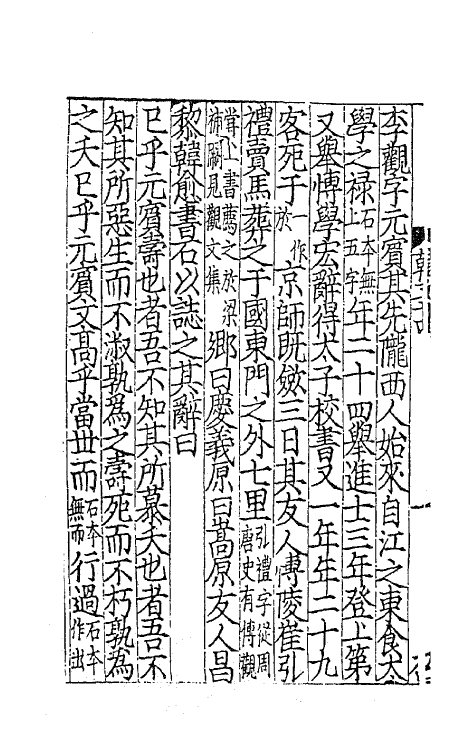 李觀字元賓其先隴西人始來自江之東食太
學之禄石本無上五字年二十四舉進士三年登上第
又舉愽學宏辭得太子校書又一年年二十九
客死于一作於京師既斂三日其友人愽陵崔弘
禮賣馬葬之于國東門之外七里弘禮字從周唐史有愽觀
甞上書薦之於梁補闕見觀文集鄉曰慶義原曰嵩原友人昌
黎韓愈書石以誌之其辭曰
已乎元賓壽也者吾不知其所慕夭也者吾不
知其所惡生而不淑孰為之壽死而不朽孰為
之夭已乎元賓文髙乎當丗而石本無而行過石本作出